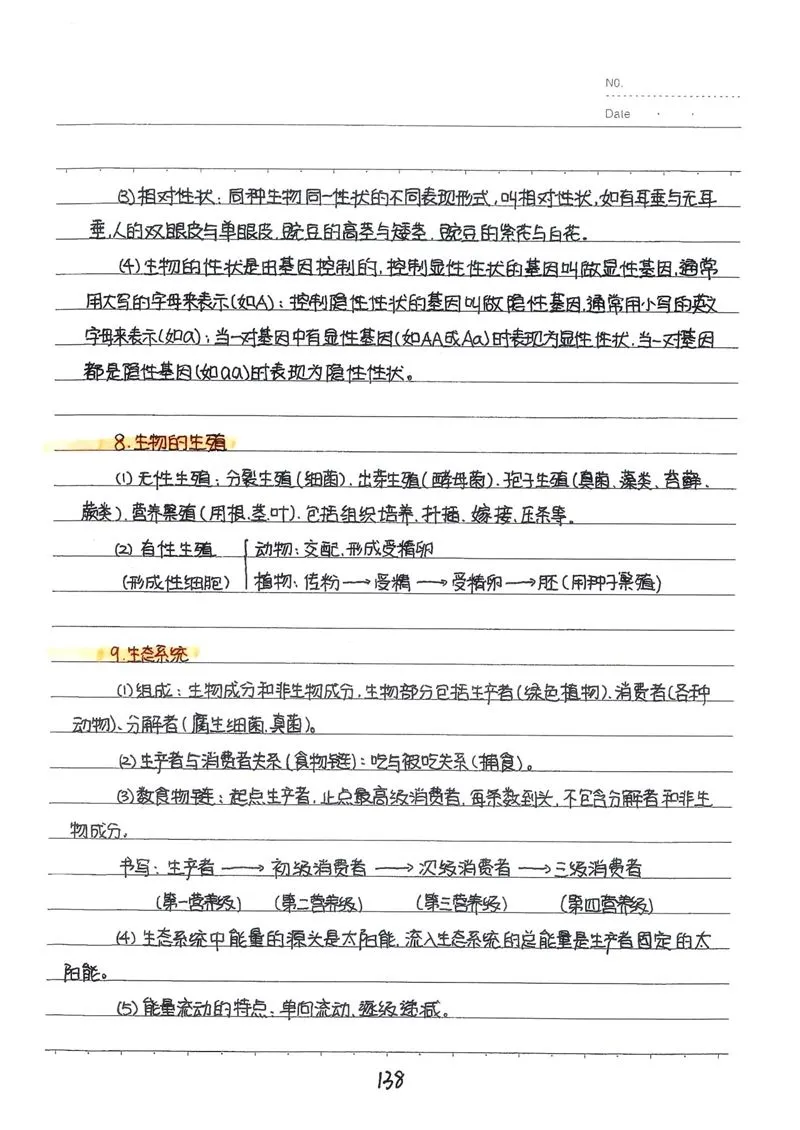 NO.
Date
(3)相对性状：同种生物同一性状的不同表现形式，叫相对性状，如有耳垂与无耳
垂，人的双眼皮与单眼皮，豌豆的高茎与矮茎，豌豆的紫花与白花。
(4)生物的性状是由基因控制的，控制显性性状的基因叫做显性基因，通常
用大写的字母来表示(如A)；控制隐性性状的基因叫做隐性基因，通常用小写的英文
字母来表示(如a)；当一对基因中有显性基因(如AA或Aa)时表现为显性性状，当一对基因
都是隐性基因(如aa)时表现为隐性性状。
8.生物的生殖
(1)无性生殖：分裂生殖(细菌)、出芽生殖(酵母菌)、孢子生殖(真菌、藻类、苔藓、
蕨类)、营养繁殖(用根、茎、叶)，包括组织培养、扦插、嫁接、压条等。
(2)有性生殖 动物：交配，形成受精卵
(形成性细胞) 植物：传粉→受精→受精卵→胚(用种子繁殖)
9.生态系统
(1)组成：生物成分和非生物成分，生物部分包括生产者(绿色植物)、消费者(各种
动物)、分解者(腐生细菌、真菌)。
(2)生产者与消费者关系(食物链)：吃与被吃关系(捕食)。
(3)数食物链：起点生产者，止点最高级消费者，每条数到头，不包含分解者和非生
物成分。
书写：生产者→初级消费者→次级消费者→三级消费者
(第一营养级) (第二营养级) (第三营养级) (第四营养级)
(4)生态系统中能量的源头是太阳能，流入生态系统的总能量是生产者固定的太
阳能。
(5)能量流动的特点：单向流动，逐级递减。
138